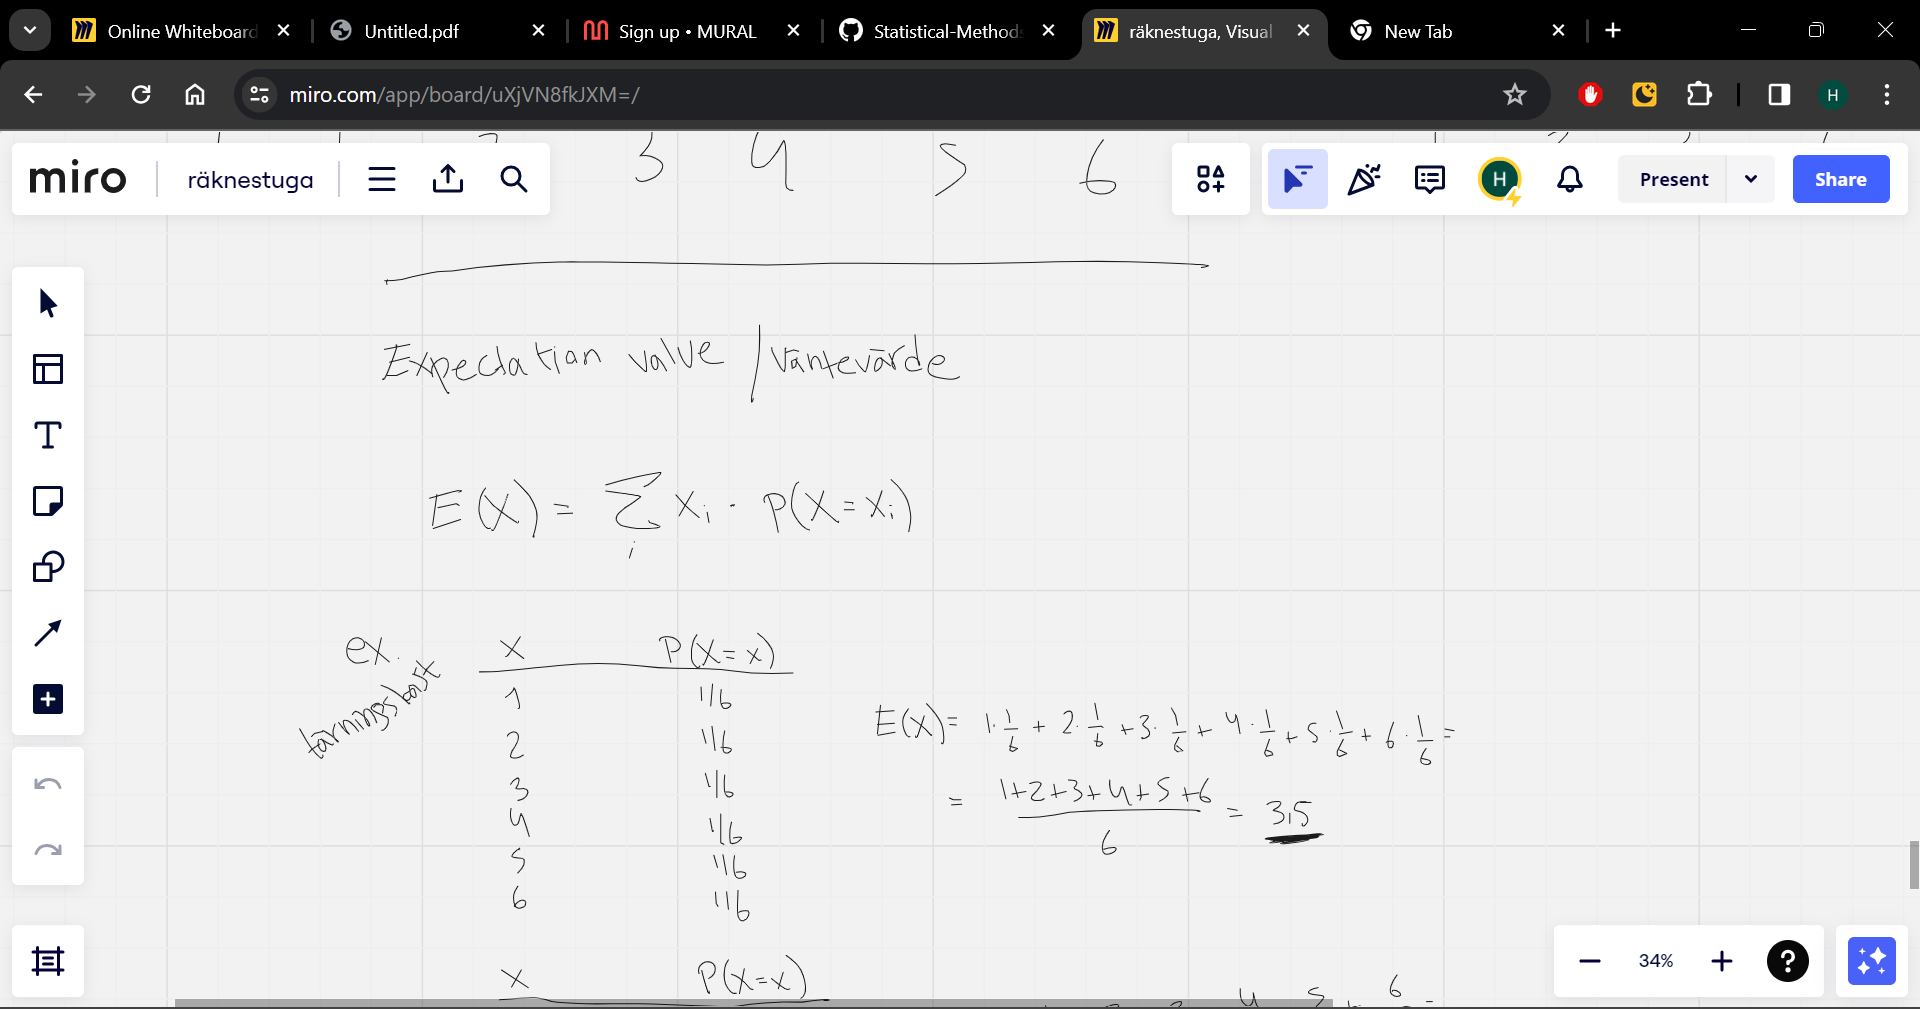 Online Whiteboard
Untitled.pdf
Sign up • MURAL
Statistical-Methods
räknestuga, Visual
New Tab
miro.com/app/board/uXjVN8fkJXM=/
H
3 4 5 6
miro
räknestuga
H
Present
Share
Expectation value | Väntevärde
E(X) = ∑ xᵢ · P(X=xᵢ)
i
ex.
tärningskast
x P(X=x)
1 1/6
2 1/6
3 1/6
4 1/6
5 1/6
6 1/6
E(X)= 1·1/6 + 2·1/6 + 3·1/6 + 4·1/6 + 5·1/6 + 6·1/6 =
= (1+2+3+4+5+6)/6 = 3,5
x P(X=x)
4 5 + 6 =
34%